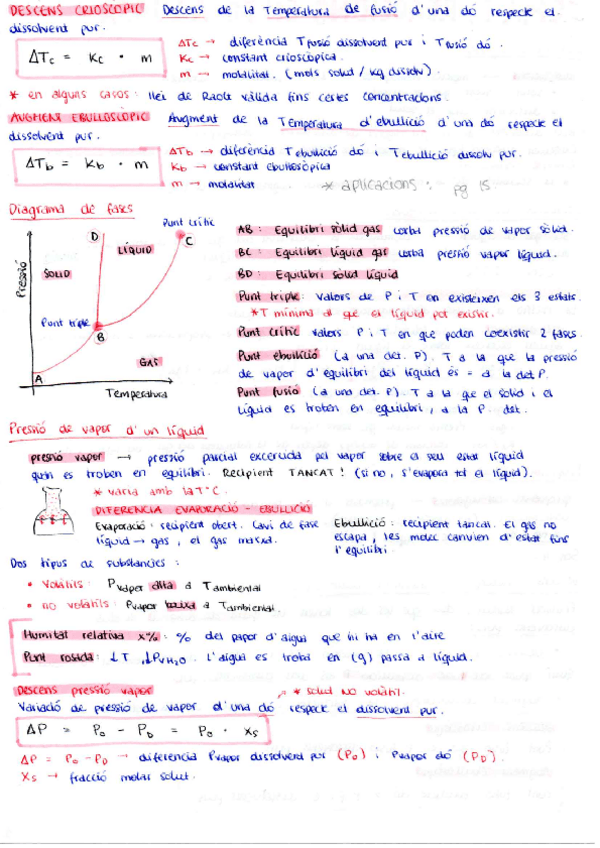 DESCENS CRIOSCOPIC Descens de la Temperatura de fusió d'una dó respecte el
dissolvent pur.
ΔTc = Kc · m
ΔTc → diferència Tfusió dissolvent pur i Tfusió dó.
Kc → constant crioscòpica.
m → molalitat. (mols solut / kg dissolv).
* en alguns casos: llei de Raoult vàlida fins certes concentracions.
AUGMENT EBULLOSCÒPIC Augment de la Temperatura d'ebullició d'una dó respecte el
dissolvent pur.
ΔTb = Kb · m
ΔTb → diferència Tebullició dó i Tebullició dissolv pur.
Kb → constant ebulloscòpica
m → molalitat
* aplicacions: pg 15
Diagrama de fases
Pressió
Temperatura
SOLID
LÍQUID
GAS
Punt crític
Punt triple
A
B
C
D
AB: Equilibri sòlid gas corba pressió de vapor sòlid.
BC: Equilibri líquid gas corba pressió vapor líquid.
BD: Equilibri sòlid líquid
Punt triple: valors de P i T on existeixen els 3 estats.
*T mínima al que el líquid pot existir.
Punt crític valors P i T en que poden coexistir 2 fases.
Punt ebullició (a una det. P). T a la que la pressió
de vapor d'equilibri del líquid és = a la det P.
Punt fusió (a una det. P). T a la que el sòlid i el
líquid es troben en equilibri, a la P. det.
Pressió de vapor d'un líquid
pressió vapor → pressió parcial excercida pel vapor sobre el seu estat líquid
quan es troben en equilibri. Recipient TANCAT! (si no, s'evapora tot el líquid).
* varia amb la T°C.
DIFERENCIA EVAPORACIÓ - EBULLICIÓ
Evaporació: recipient obert. Canvi de fase
líquid → gas, el gas marxa.
Ebullició: recipient tancat. El gas no
escapa, les molec canvien d'estat fins
l'equilibri.
Dos tipus de substàncies:
• Volàtils: Pvapor alta a Tambiental
• no volàtils: Pvapor baixa a Tambiental.
Humitat relativa x%: % del papor d'aigua que hi ha en l'aire
Punt rosada: ↓T, ↓PvH2O. L'aigua es troba en (g) passa a líquid.
Descens pressió vapor
* solut NO volàtil.
Variació de pressió de vapor d'una dó respecte el dissolvent pur.
ΔP = Po - PD = Po · Xs
ΔP = Po - PD → diferència Pvapor dissolvent pur (Po) i Pvapor dó (PD).
Xs → fracció molar solut.